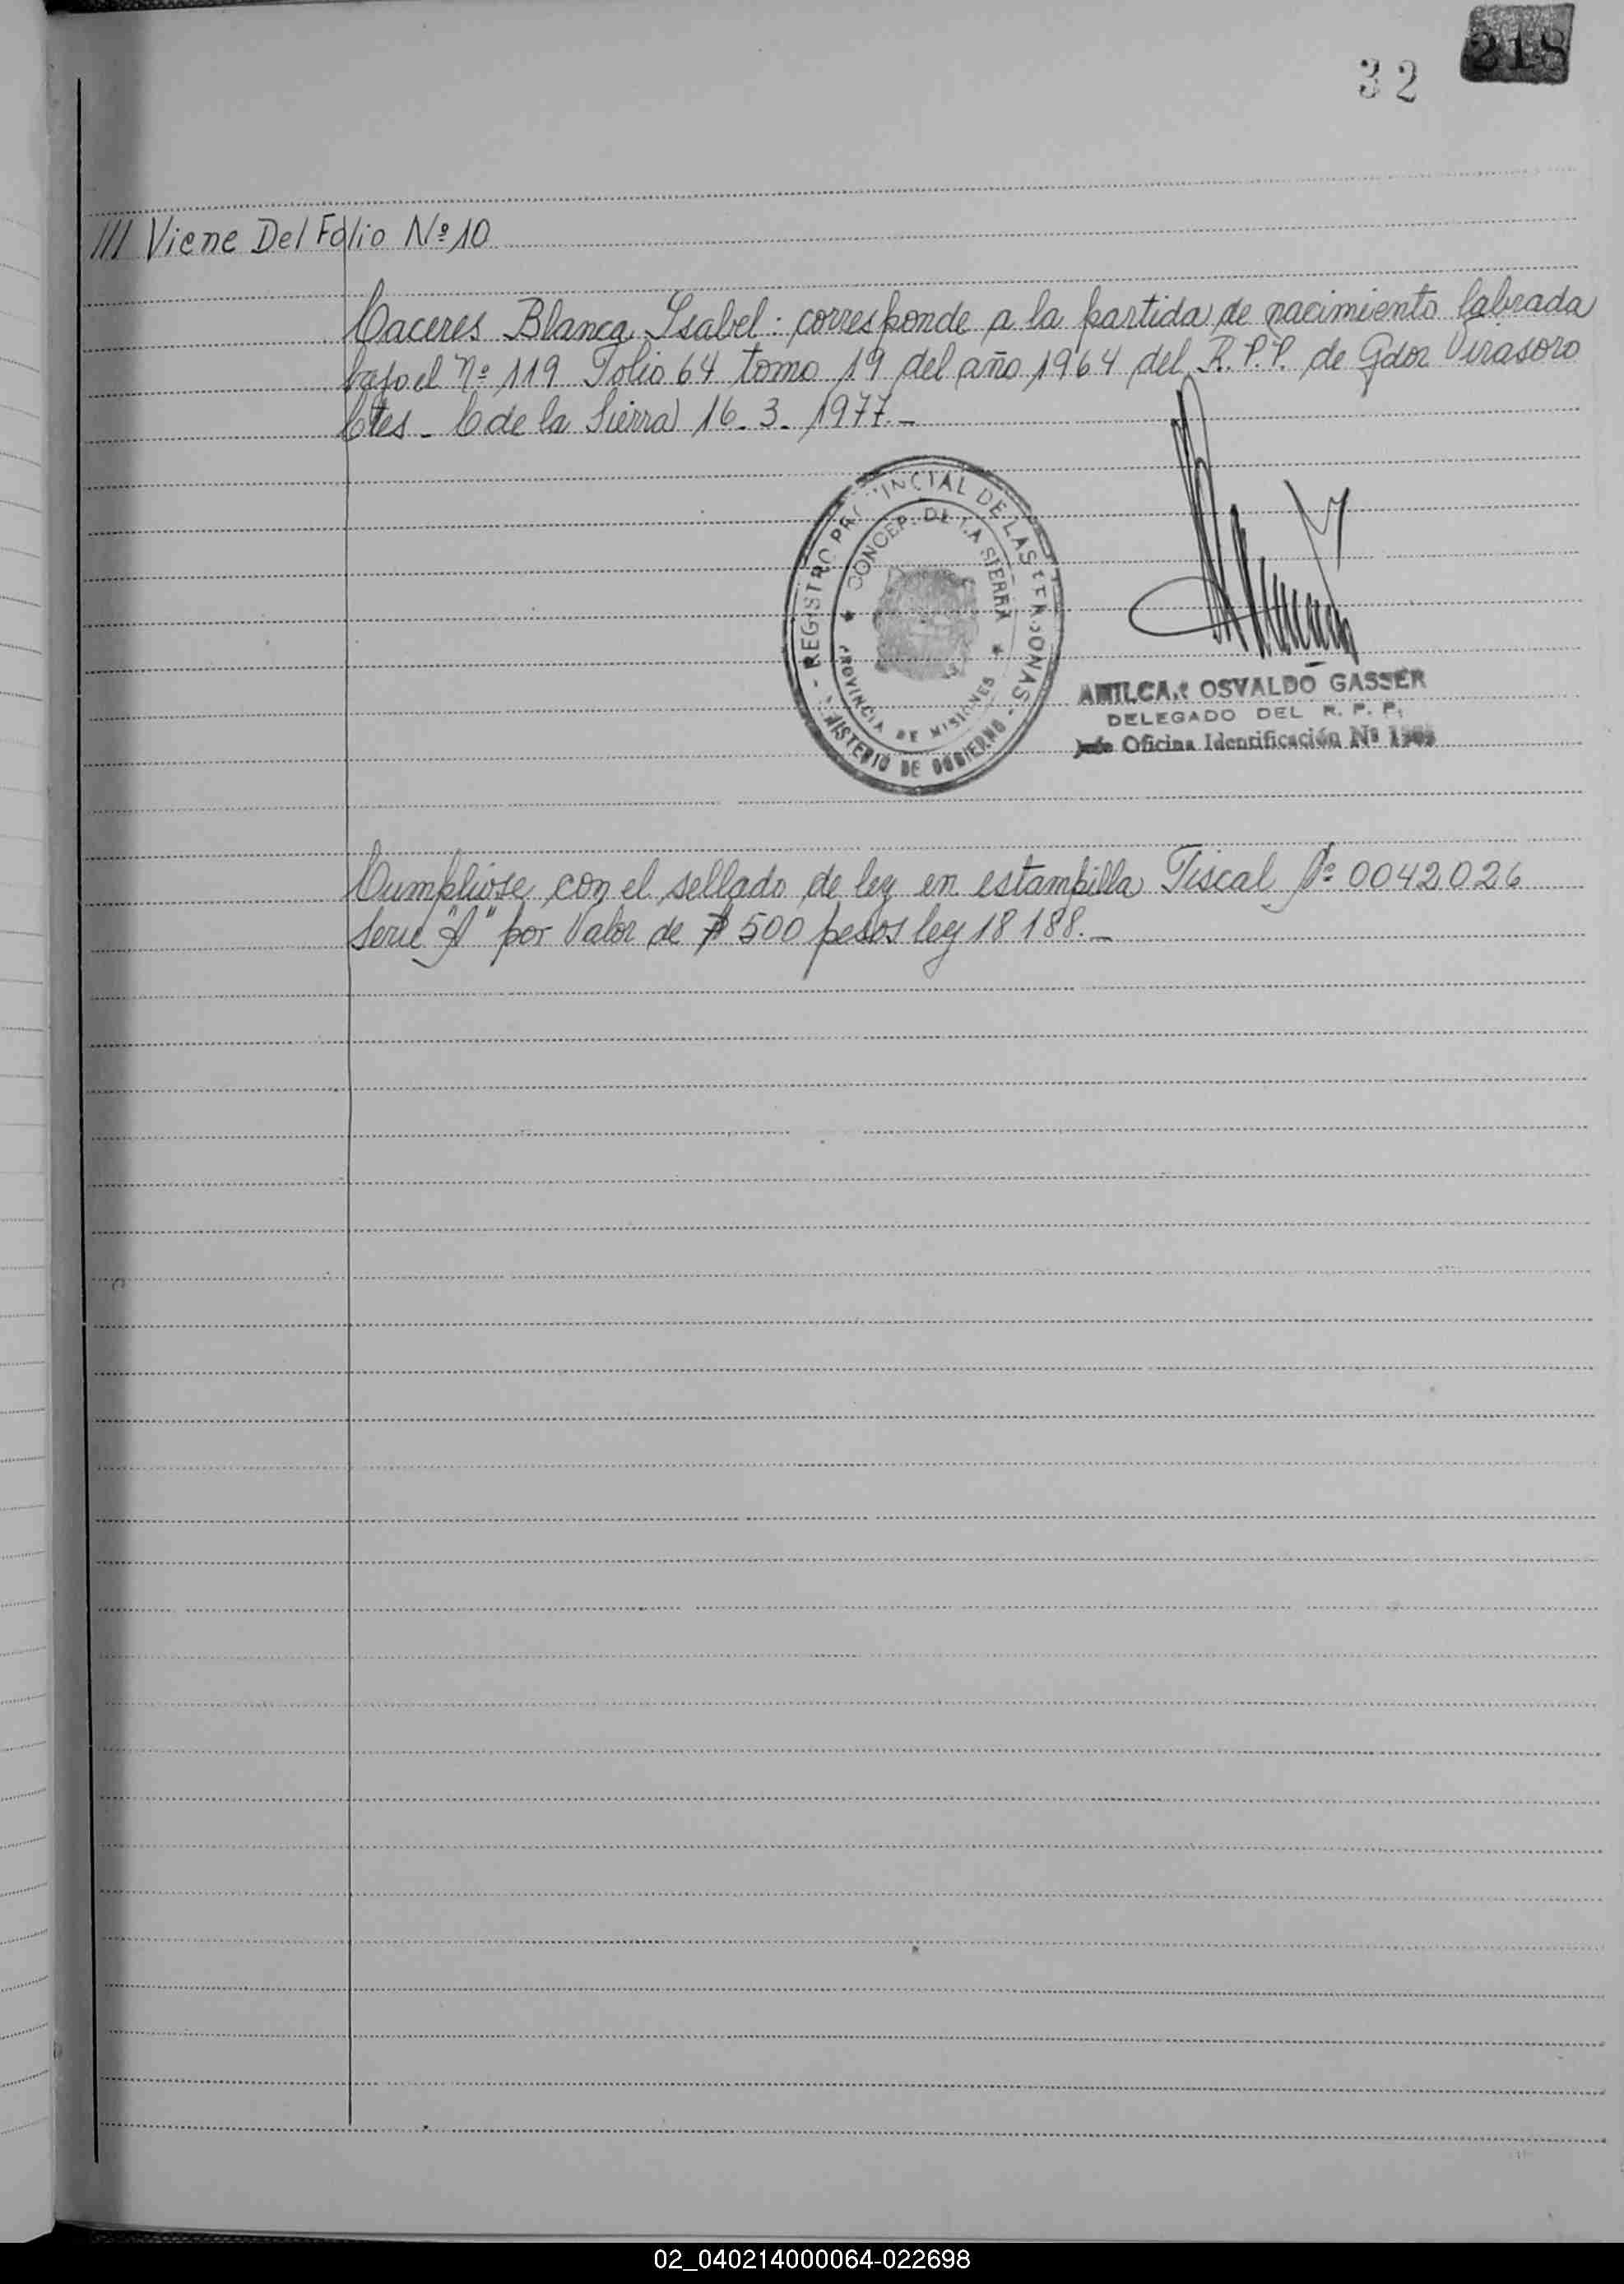 32
218
/// Viene Del Folio Nº 10
Caceres Blanca Ysabel: corresponde a la partida de nacimiento labrada
bajo el nº 119 Folio 64 tomo 19 del año 1964 del R.P.P. de Gdor Virasoro
Ctes - C de la Sierra 16-3-1977.-
REGISTRO PROVINCIAL DE LAS PERSONAS
CONCEP. DE LA SIERRA
PROVINCIA DE MISIONES
MINISTERIO DE GOBIERNO
AMILCAR OSVALDO GASSER
DELEGADO DEL R. P. P.
Jefe Oficina Identificación Nº
Cumpliose con el sellado de ley en estampilla Fiscal Nº 0042026
serie "A" por Valor de $ 500 pesos ley 18188.-
02_040214000064-022698